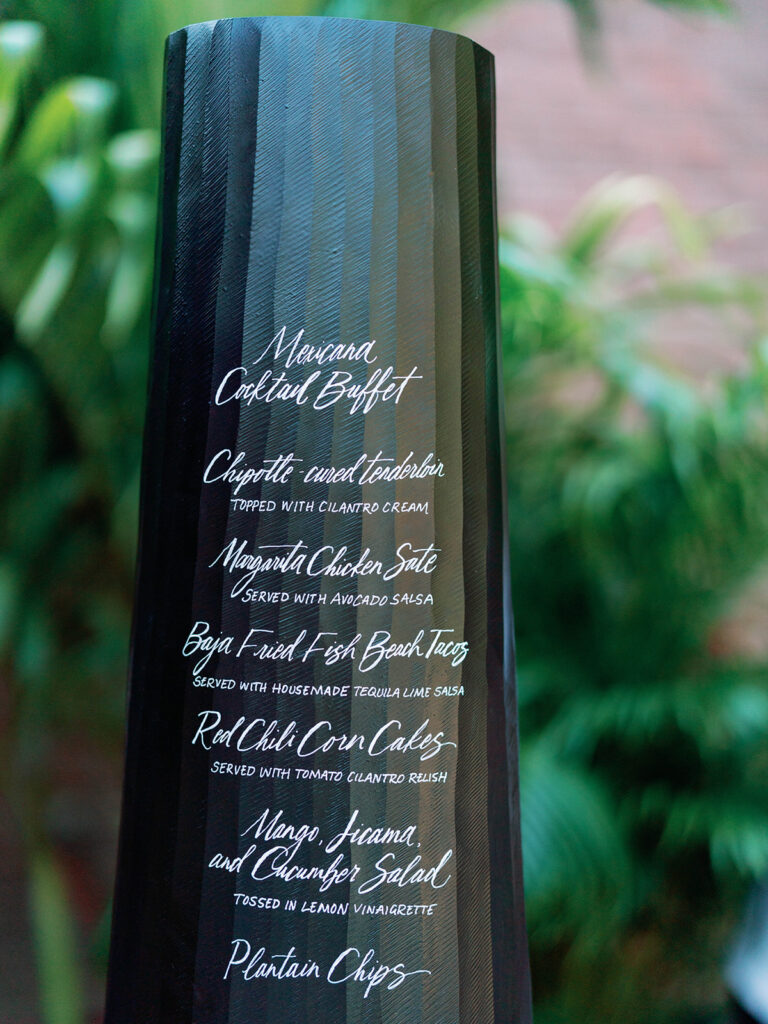 Mexicana
Cocktail Buffet
Chipotle-cured tenderloin
TOPPED WITH CILANTRO CREAM
Margarita Chicken Sate
SERVED WITH AVOCADO SALSA
Baja Fried Fish Beach Tacos
SERVED WITH HOUSEMADE TEQUILA LIME SALSA
Red Chili Corn Cakes
SERVED WITH TOMATO CILANTRO RELISH
Mango, Jicama,
and Cucumber Salad
TOSSED IN LEMON VINAIGRETTE
Plantain Chips